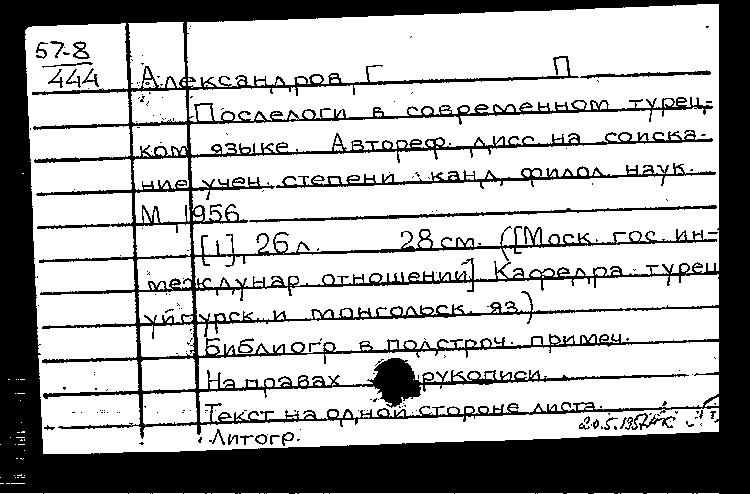 57-8
444
Александров, Г П
Послелоги в современном турец-
ком языке. Автореф. дисс на соиска-
ние учен. степени канд. филол. наук.
М., 1956
[1], 26 л. 28 см. ([Моск. гос. ин-
междунар. отношений] Кафедра турец
уйгурск. и монгольск. яз.)
Библиогр в подстроч. примеч.
На правах рукописи.
Текст на одной стороне листа.
Литогр.
20.5.1957